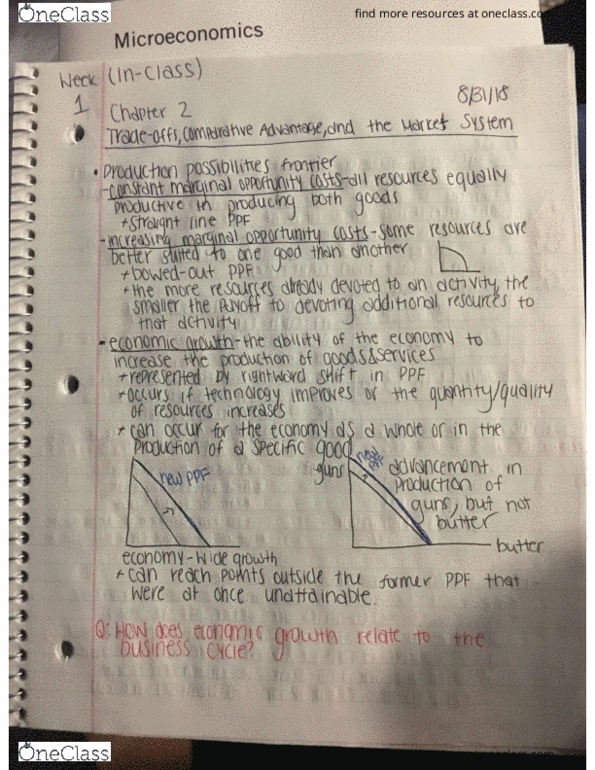 OneClass
find more resources at oneclass.com
Microeconomics
Week (In-Class)
1
8/31/18
Chapter 2
Trade-offs, Comparative Advantage, and the Market System
• Production possibilities frontier
-constant marginal opportunity costs-all resources equally
productive in producing both goods
+straight line PPF
-increasing marginal opportunity costs-some resources are
better suited to one good than another
+bowed-out PPF
+the more resources already devoted to an activity, the
smaller the payoff to devoting additional resources to
that activity
-economic growth-the ability of the economy to
increase the production of goods&services
+represented by rightward shift in PPF
+occurs if technology improves or the quantity/quality
of resources increases
+can occur for the economy as a whole or in the
production of a specific good
new PPF
guns
new PPF
advancement in
production of
guns, but not
butter
butter
economy-wide growth
+can reach points outside the former PPF that
were at once unattainable.
Q: How does economic growth relate to the
business cycle?
OneClass